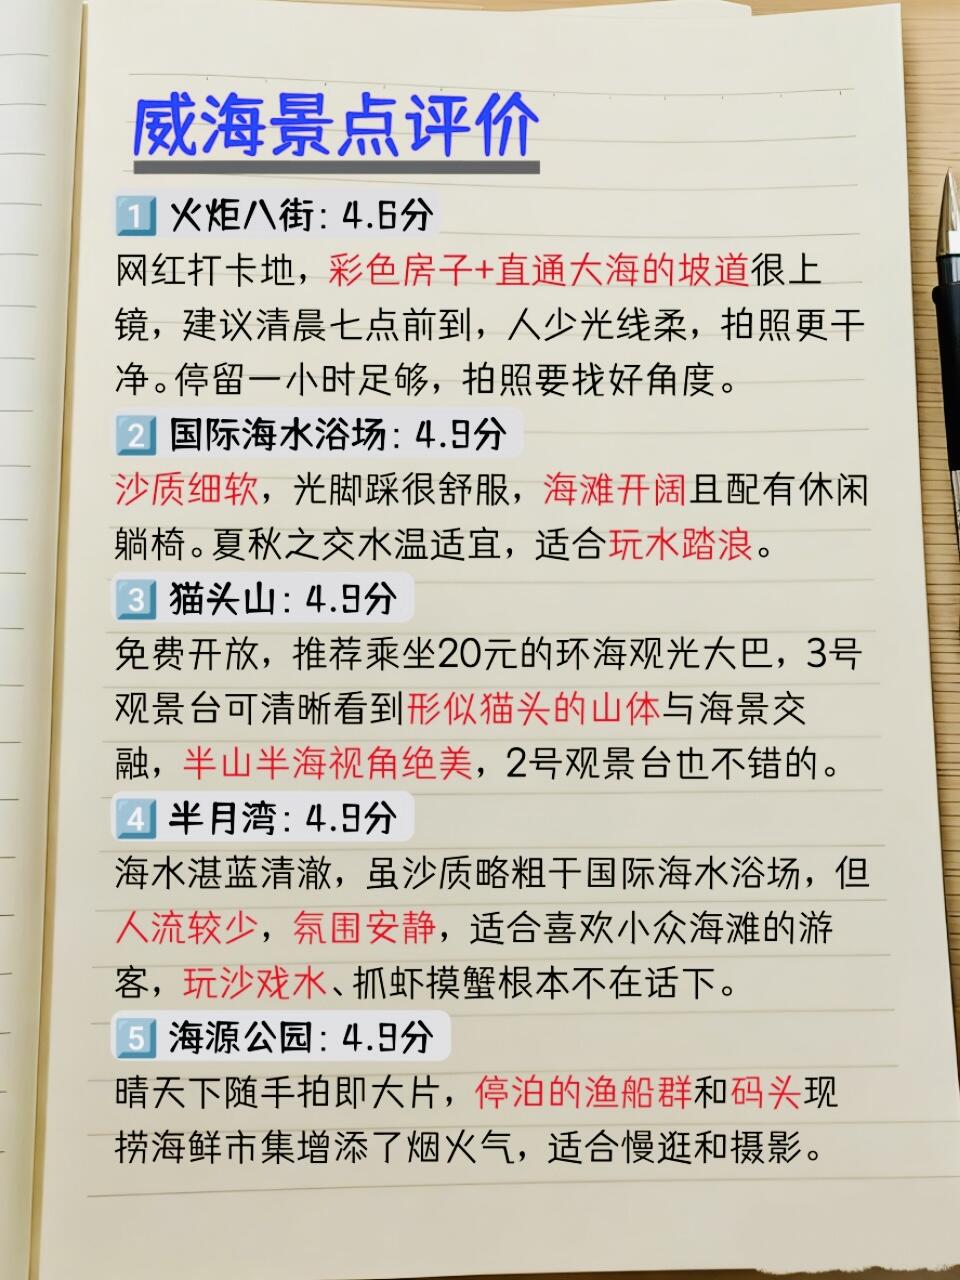 威海景点评价
1 火炬八街: 4.6分
网红打卡地，彩色房子+直通大海的坡道很上
镜，建议清晨七点前到，人少光线柔，拍照更干
净。停留一小时足够，拍照要找好角度。
2 国际海水浴场: 4.9分
沙质细软，光脚踩很舒服，海滩开阔且配有休闲
躺椅。夏秋之交水温适宜，适合玩水踏浪。
3 猫头山: 4.9分
免费开放，推荐乘坐20元的环海观光大巴，3号
观景台可清晰看到形似猫头的山体与海景交
融，半山半海视角绝美，2号观景台也不错的。
4 半月湾: 4.9分
海水湛蓝清澈，虽沙质略粗于国际海水浴场，但
人流较少，氛围安静，适合喜欢小众海滩的游
客，玩沙戏水、抓虾摸蟹根本不在话下。
5 海源公园: 4.9分
晴天下随手拍即大片，停泊的渔船群和码头现
捞海鲜市集增添了烟火气，适合慢逛和摄影。